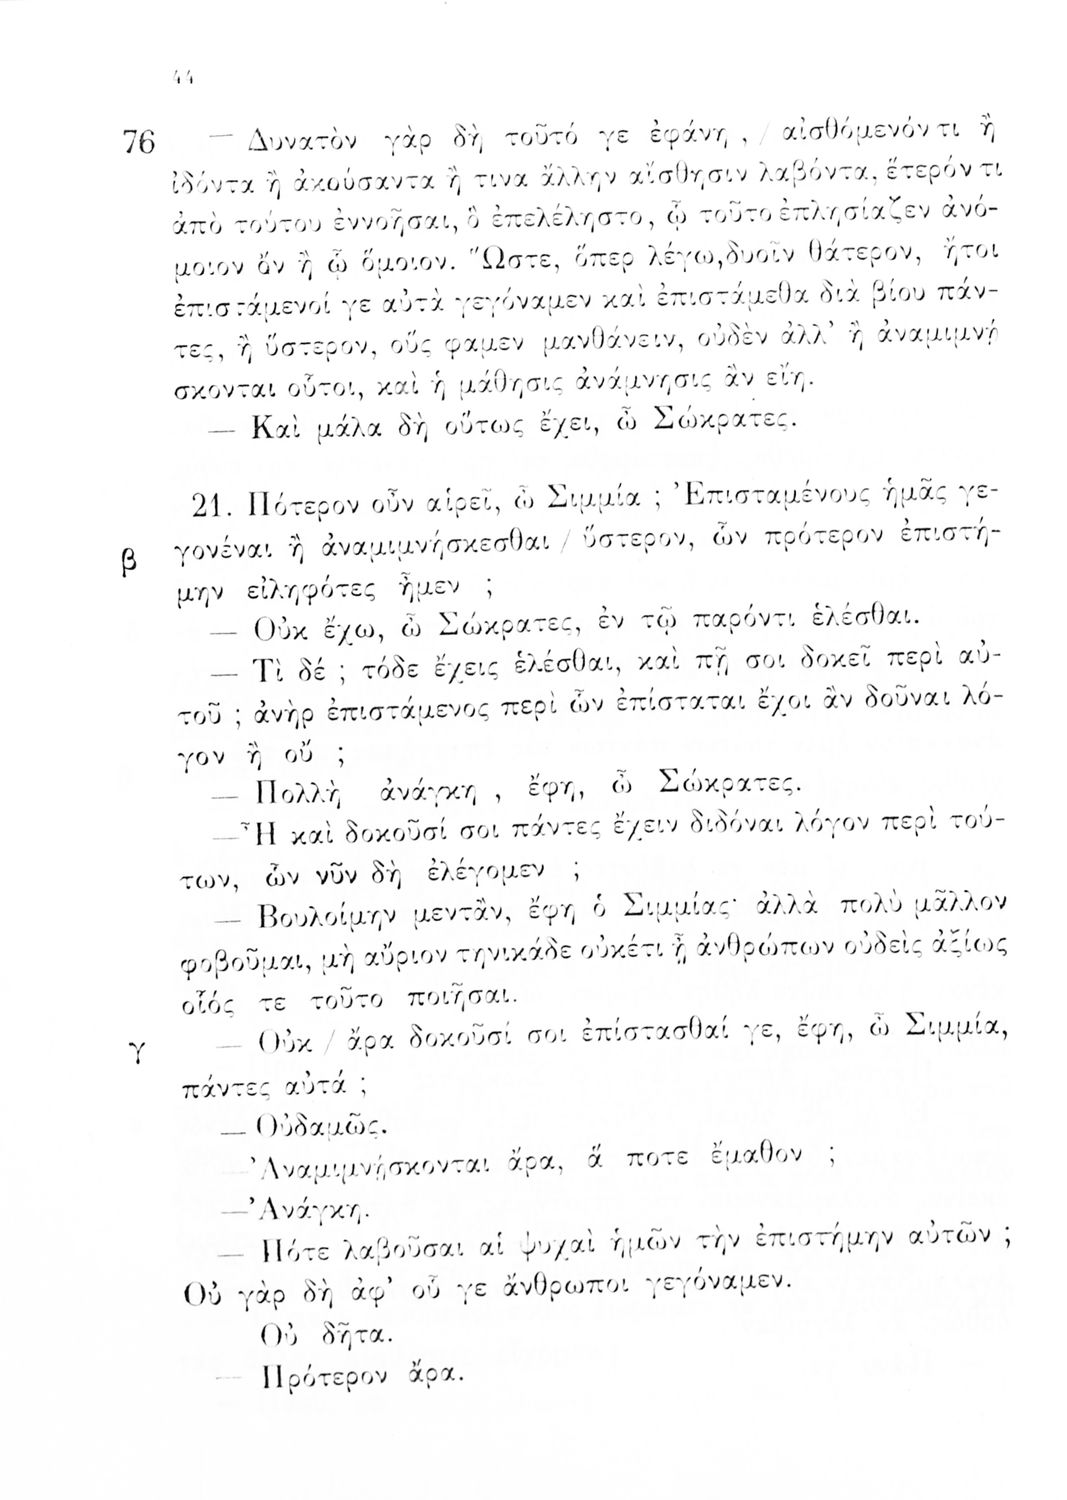 44
76 — Δυνατὸν γὰρ δὴ τοῦτό γε ἐφάνη , / αἰσθόμενόν τι ἢ
ἰδόντα ἢ ἀκούσαντα ἢ τινα ἄλλην αἴσθησιν λαβόντα, ἕτερόν τι
ἀπὸ τούτου ἐννοῆσαι, ὃ ἐπελέληστο, ᾧ τοῦτο ἐπλησίαζεν ἀνό-
μοιον ὂν ἢ ᾧ ὅμοιον. Ὥστε, ὅπερ λέγω, δυοῖν θάτερον, ἤτοι
ἐπιστάμενοί γε αὐτὰ γεγόναμεν καὶ ἐπιστάμεθα διὰ βίου πάν-
τες, ἢ ὕστερον, οὕς φαμεν μανθάνειν, οὐδὲν ἀλλ’ ἢ ἀναμιμνή
σκονται οὗτοι, καὶ ἡ μάθησις ἀνάμνησις ἂν εἴη.
— Καὶ μάλα δὴ οὕτως ἔχει, ὦ Σώκρατες.
21. Πότερον οὖν αἱρεῖ, ὦ Σιμμία ; Ἐπισταμένους ἡμᾶς γε-
β γονέναι ἢ ἀναμιμνήσκεσθαι / ὕστερον, ὧν πρότερον ἐπιστή-
μην εἰληφότες ἦμεν ;
— Οὐκ ἔχω, ὦ Σώκρατες, ἐν τῷ παρόντι ἑλέσθαι.
— Τὶ δέ ; τόδε ἔχεις ἑλέσθαι, καὶ πῇ σοι δοκεῖ περὶ αὐ-
τοῦ ; ἀνὴρ ἐπιστάμενος περὶ ὧν ἐπίσταται ἔχοι ἂν δοῦναι λό-
γον ἢ οὔ ;
— Πολλὴ ἀνάγκη , ἔφη, ὦ Σώκρατες.
— Ἦ καὶ δοκοῦσί σοι πάντες ἔχειν διδόναι λόγον περὶ τού-
των, ὧν νῦν δὴ ἐλέγομεν ;
— Βουλοίμην μεντἂν, ἔφη ὁ Σιμμίας· ἀλλὰ πολὺ μᾶλλον
φοβοῦμαι, μὴ αὔριον τηνικάδε οὐκέτι ᾖ ἀνθρώπων οὐδεὶς ἀξίως
οἷός τε τοῦτο ποιῆσαι.
γ — Οὐκ / ἄρα δοκοῦσί σοι ἐπίστασθαί γε, ἔφη, ὦ Σιμμία,
πάντες αὐτά ;
— Οὐδαμῶς.
— Ἀναμιμνήσκονται ἄρα, ἅ ποτε ἔμαθον ;
— Ἀνάγκη.
— Πότε λαβοῦσαι αἱ ψυχαὶ ἡμῶν τὴν ἐπιστήμην αὐτῶν ;
Οὐ γὰρ δὴ ἀφ’ οὗ γε ἄνθρωποι γεγόναμεν.
Οὐ δῆτα.
— Πρότερον ἄρα.